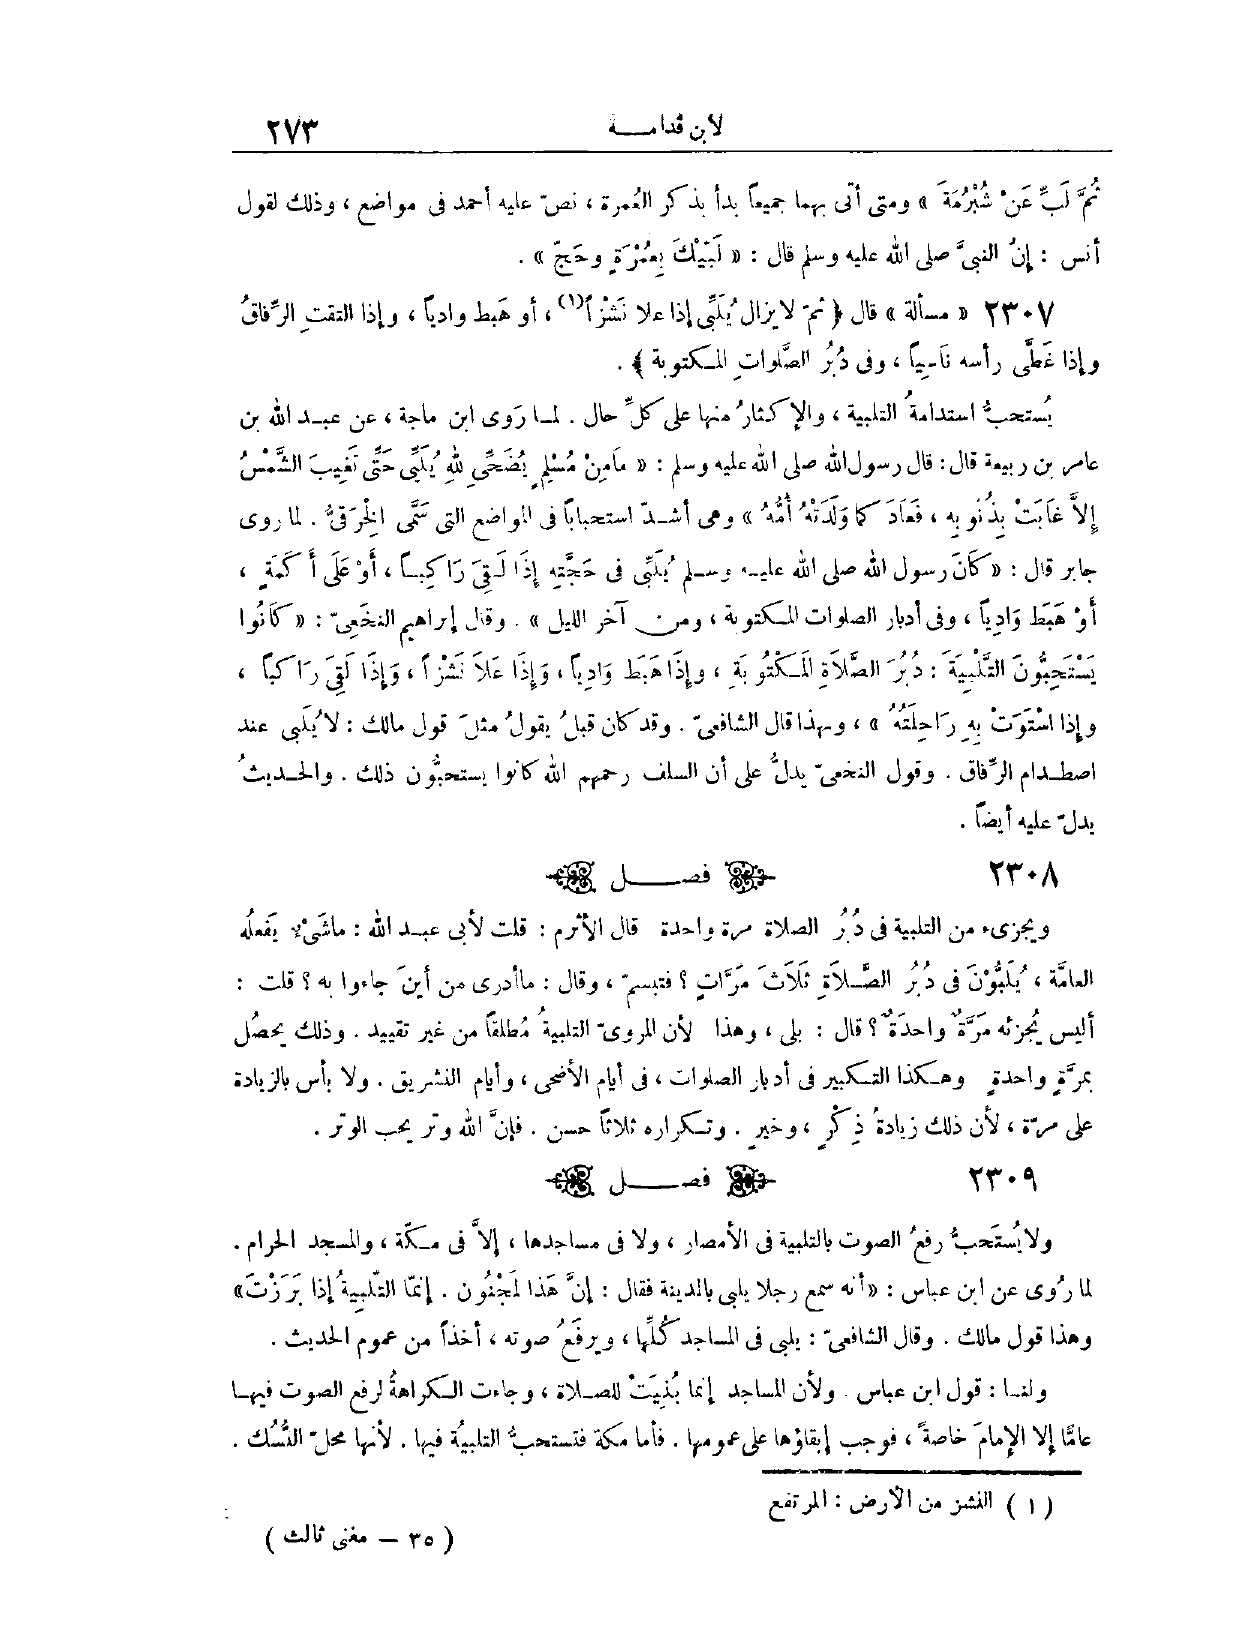 لابن قدامـــة ٢٧٣
ثُمَّ لَبِّ عَنْ شُبْرُمَةَ » ومتى أتى بهما جميعاً بدأ بذكر العُمرة ، نصّ عليه أحمد فى مواضع ، وذلك لقول
أنس : إنُ النبىَّ صلى الله عليه وسلم قال : « لَبَّيْكَ بِعُمْرَةٍ وحَجّ » .
٢٣٠٧ « مسألة » قال ﴿ ثمّ لا يزال يُلَبِّى إذا علا نَشْزاً(١) ، أو هَبط وادياً ، وإذا التقتِ الرِّفاقُ
وإذا غَطَّى رأسه نَاسِياً ، وفى دُبُرِ الصَّلواتِ المـكتوبة ﴾ .
يُستحبُّ استدامةُ التلبية ، والإكثارُ منها على كلِّ حال . لمـا رَوى ابن ماجة ، عن عبـد الله بن
عامر بن ربيعة قال : قال رسول الله صلى الله عليه وسلم : « مَامِنْ مُسْلِمٍ يُضَحِّى لِلهِ يُلَبِّى حَتَّى تَغِيبَ الشَّمْسُ
إِلاَّ غَابَتْ بِذُنُوبِهِ ، فَعَادَ كَمَا وَلَدَتْهُ أُمُّهُ » وهى أشـدّ استحباباً فى المواضع التى سَمَّى الخِرَقىُّ . لما روى
جابر قال : « كَانَ رسول الله صلى الله عليـه وسـلم يُلَبِّى فى حَجَّتِهِ إِذَا لَقِىَ رَاكِبـاً ، أَوْ عَلَى أَكَمَةٍ ،
أَوْ هَبَطَ وَادِياً ، وفى أدبار الصلوات المـكتوبة ، ومن آخر الليل » . وقال إبراهيم النخَعىّ : « كَانُوا
يَسْتَحِبُّونَ التَّلْبِيَةَ : دُبُرَ الصَّلاَةِ المَـكْتُوبَةِ ، وإِذَا هَبَطَ وَادِياً ، وَإِذَا عَلاَ نَشْزاً ، وَإِذَا لَقِىَ رَاكباً ،
وإذا اسْتَوَتْ بِهِ رَاحِلَتُهُ » ، وبهذا قال الشافعىّ . وقد كان قبلُ يقولُ مثلَ قول مالك : لا يُلَبى عند
اصطـدام الرِّفاق . وقول النخعىّ يدلُّ على أن السلف رحمهم الله كانوا يستحبُّون ذلك . والحـديثُ
يدلّ عليه أيضاً .
٢٣٠٨ فصــــل
ويجزىء من التلبية فى دُبُرِ الصلاة مرة واحدة قال الأثرم : قلت لأبى عبـد الله : ماشَىْء يَفعلُه
العامَّة ، يُلَبُّوْنَ فى دُبُرِ الصَّـلاَةِ ثَلاَثَ مَرَّاتٍ ؟ فتبسمّ ، وقال : ماأدرى من أينَ جاءوا به ؟ قلت :
أليس يُجزئه مَرَّةٌ واحدَةٌ ؟ قال : بلى ، وهذا لأن المروىّ التلبيةُ مُطلقاً من غير تقييد . وذلك يحصُل
بمرّةٍ واحدةٍ وهـكذا التـكبير فى أدبار الصلوات ، فى أيام الأضحى ، وأيام التشريق . ولا بأس بالزيادة
على مرّة ، لأن ذلك زيادةُ ذِكْرٍ ، وخيرٍ . وتـكراره ثلاثاً حسن . فإنَّ الله وتر يحب الوتر .
٢٣٠٩ فصــــل
ولا يُستَحبُّ رفعُ الصوت بالتلبية فى الأمصار ، ولا فى مساجدها ، إلاَّ فى مـكّة ، والمسجد الحرام .
لما رُوى عن ابن عباس : «أنه سمع رجلا يلبى بالمدينة فقال : إنَّ هَذا لَمَجْنُون . إنمّا التّلبيةُ إذا بَرَزْتَ»
وهذا قول مالك . وقال الشافعىّ : يلبى فى المساجد كُلِّها ، ويرفَعُ صوته ، أخذاً من عموم الحديث .
ولنـا : قول ابن عباس . ولأن المساجد إنما بُنِيَتْ للصـلاة ، وجاءت الـكراهةُ لرفع الصوت فيهـا
عامًّا إلا الإمامَ خاصةً ، فوجب إبقاؤها على عمومها . فأما مكة فتستحبُّ التلبيُة فيها . لأنها محلّ النُّسُك .
( ١ ) النشز من الأرض : المرتفع
( ٣٥ — مغنى ثالث )